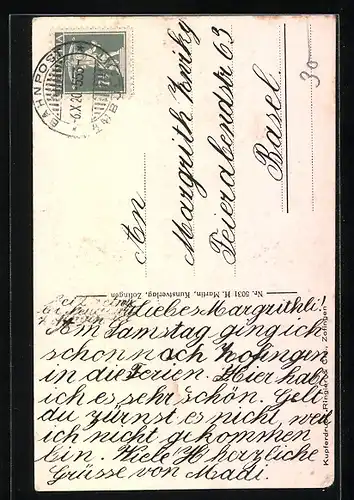 BAHNPOST
6.X.20
An
Margrith Zwicky
Feierabendstr 63
Basel.
30
Nr. 5031 H. Martin, Kunstverlag, Zofingen
Kupferdruck Ringier & Zofingen
Liebes Margrithli!
Am Samstag ging ich
schon nach Zofingen
in die Ferien. Hier hab
ich es sehr schön. Gelt
du zürnst es nicht, weil
ich nicht gekommen
bin. Viele herzliche
Grüsse von Madi.